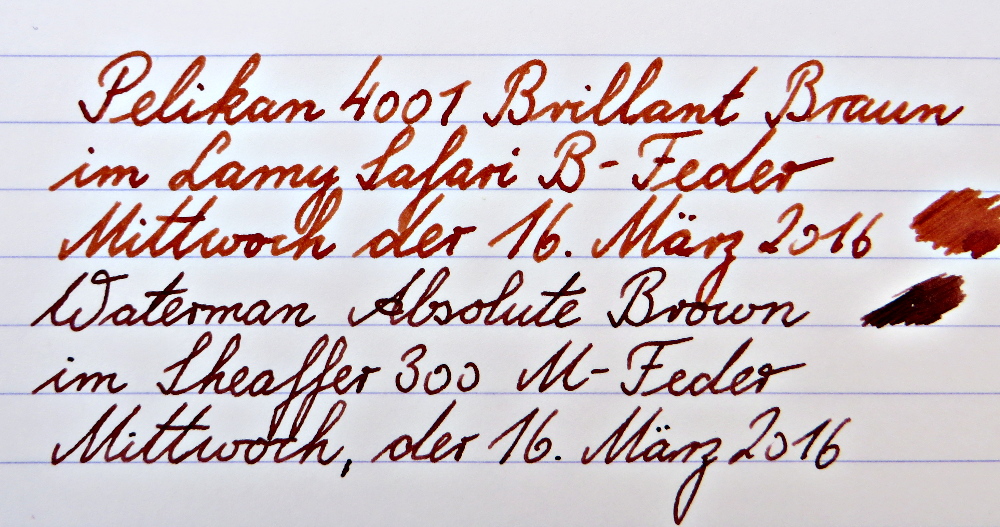 Pelikan 4001 Brillant Braun
im Lamy Safari B-Feder
Mittwoch der 16. März 2016
Waterman Absolute Brown
im Sheaffer 300 M-Feder
Mittwoch, der 16. März 2016